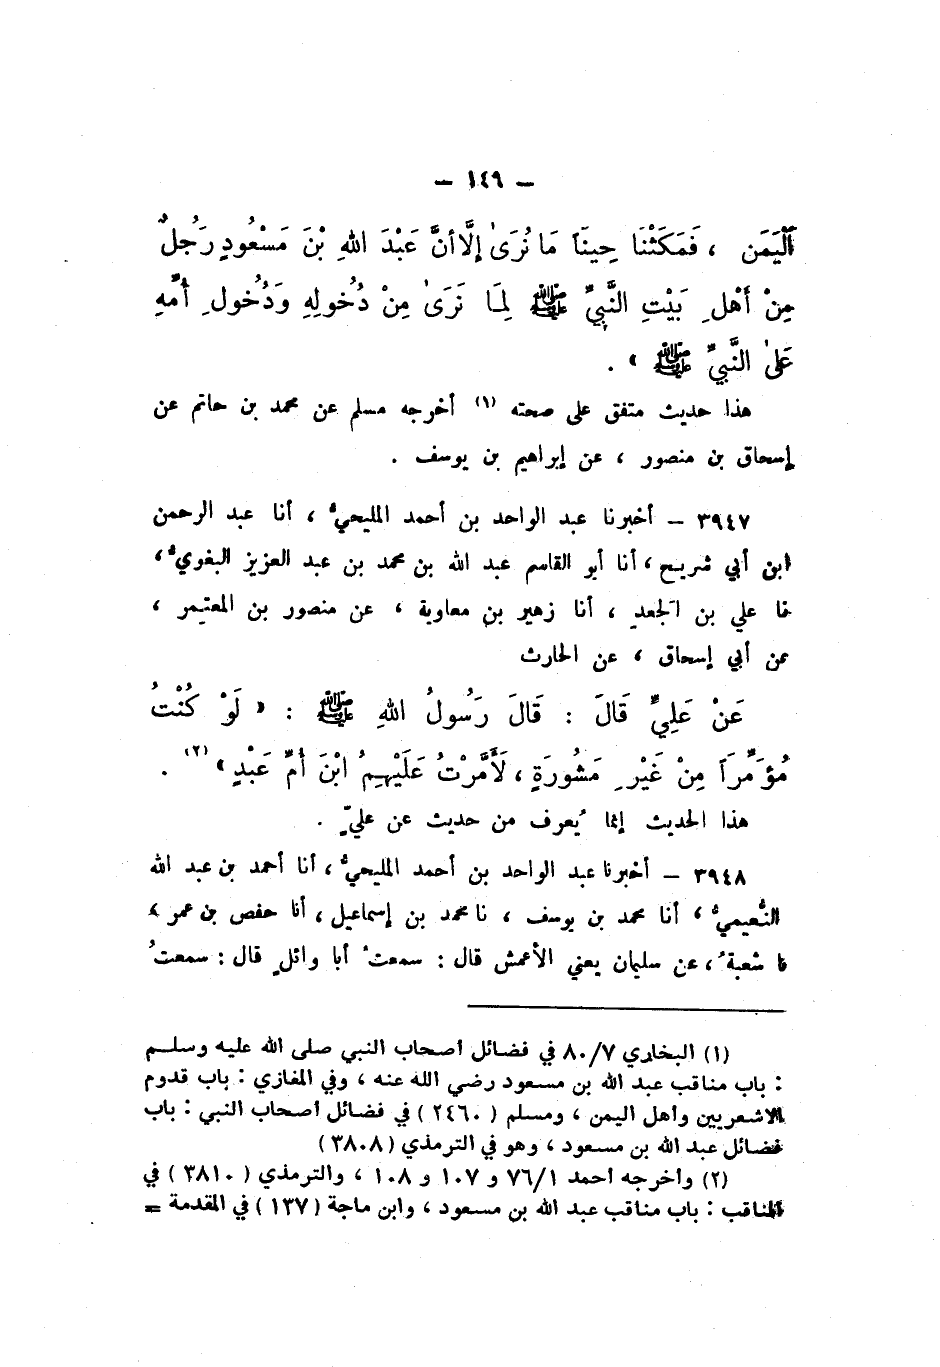 – ١٤٩ –
اَلْيَمَن ، فَمَكَثْنَا حِينًا مَا نُرَىٰ إِلَّا أنَّ عَبْدَ اللهِ بْنَ مَسْعُودٍ رَجُلٌ
مِنْ أَهْلِ بَيْتِ النَّبِيِّ ﷺ لِمَا نَرَىٰ مِنْ دُخُولِهِ وَدُخُولِ أُمِّهِ
عَلىٰ النَّبِيِّ ﷺ » .
هذا حديث متفق على صحته (١) أخرجه مسلم عن محمد بن حاتم عن
إسحاق بن منصور ، عن إبراهيم بن يوسف .
٣٩٤٧ – أخبرنا عبد الواحد بن أحمد المليحيُّ ، أنا عبد الرحمن
ابن أبي شريح ، أنا أبو القاسم عبد الله بن محمد بن عبد العزيز البغويُّ ،
نا علي بن الجعدِ ، أنا زهير بن معاوية ، عن منصور بن المعتمر ،
عن أبي إسحاق ، عن الحارث
عَنْ عَلِيٍّ قَالَ : قَالَ رَسُولُ اللهِ ﷺ : « لَوْ كُنْتُ
مُؤَمِّرَاً مِنْ غَيْرِ مَشُورَةٍ ، لَأَمَّرْتُ عَلَيْهِمُ ابْنَ أُمِّ عَبْدٍ » (٢) .
هذا الحديث إنما يُعرف من حديث عن عليٍّ .
٣٩٤٨ – أخبرنا عبد الواحد بن أحمد المليحيُّ ، أنا أحمد بن عبد الله
النُّعيميُّ ، أنا محمد بن يوسف ، نا محمد بن إسماعيل ، أنا حفص بن عمر ،
نا شعبةُ ، عن سليمان يعني الأعمش قال : سمعتُ أبا وائلٍ قال : سمعتُ
(١) البخاري ٨٠/٧ في فضائل أصحاب النبي صلى الله عليه وسلم
: باب مناقب عبد الله بن مسعود رضي الله عنه ، وفي المغازي : باب قدوم
الاشعريين وأهل اليمن ، ومسلم ( ٢٤٦٠ ) في فضائل أصحاب النبي : باب
فضائل عبد الله بن مسعود ، وهو في الترمذي ( ٣٨٠٨ )
(٢) وأخرجه أحمد ٧٦/١ و ١٠٧ و ١٠٨ ، والترمذي ( ٣٨١٠ ) في
المناقب : باب مناقب عبد الله بن مسعود ، وابن ماجة ( ١٣٧ ) في المقدمة =